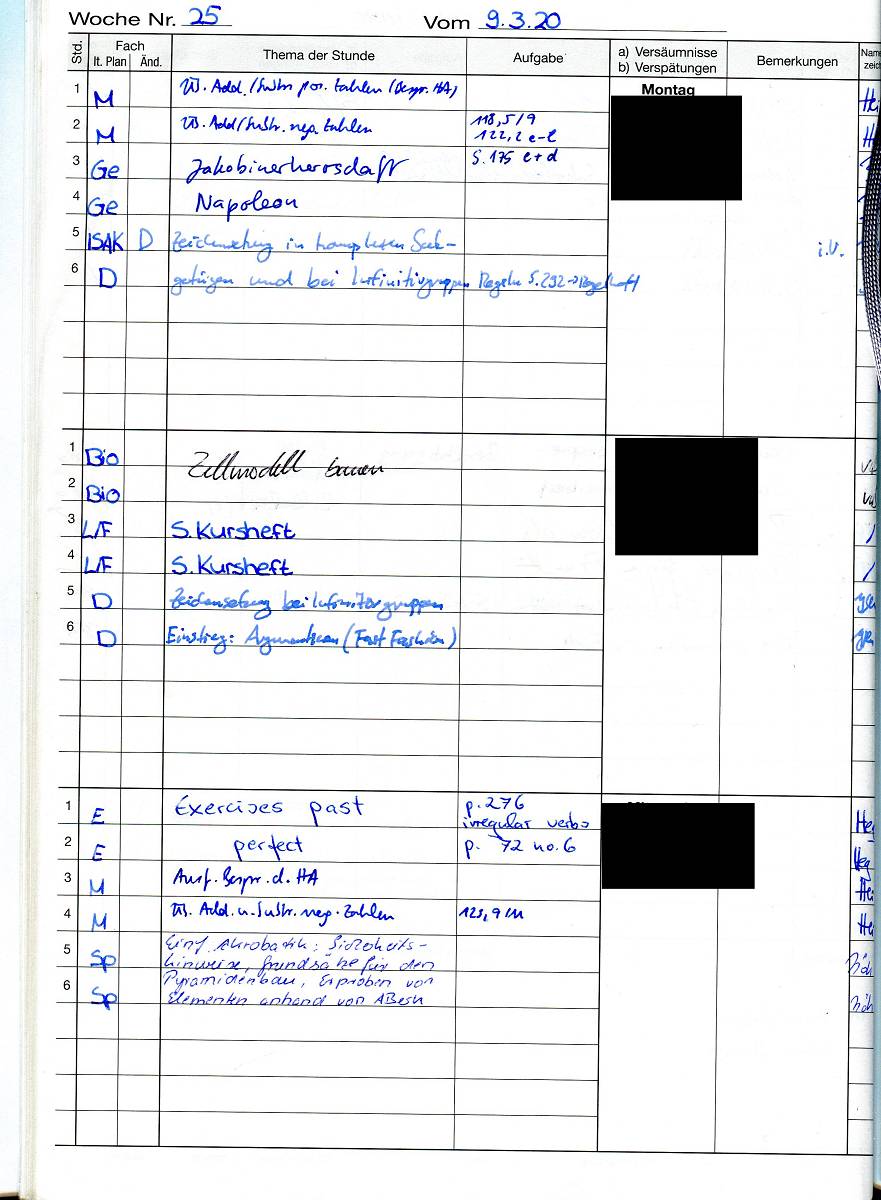 Woche Nr. 25 Vom 9.3.20
Std. Fach Thema der Stunde Aufgabe a) Versäumnisse Bemerkungen
lt. Plan Änd. b) Verspätungen
Montag
1 M W. Add./Subtr. pos. Zahlen (Bespr. HA)
2 M W. Add/Subtr. neg. Zahlen 118,5/9
122,2 e-l
3 Ge Jakobinerherrschaft S. 175 c+d
4 Ge Napoleon
5 ISAK D Zeichensetzung in komplexen Satz-
i.V.
6 D gefügen und bei Infinitivgruppen Regeln S. 292 → Regelheft
1 Bio Zellmodell bauen
2 Bio
3 L/F S. Kursheft
4 L/F S. Kursheft
5 D Zeichensetzung bei Infinitivgruppen
6 D Einstieg: Argumentieren (Fast Fashion)
1 E Exercises past p. 276
irregular verbs
2 E perfect p. 72 no. 6
3 M Ausf. Bespr. d. HA
4 M W. Add. u. Subtr. neg. Zahlen 123,9
5 Sp Einf. Akrobatik: Sicherheits-
hinweise, Grundsätze für den
6 Sp Pyramidenbau, Erproben von
Elementen anhand von ABesch